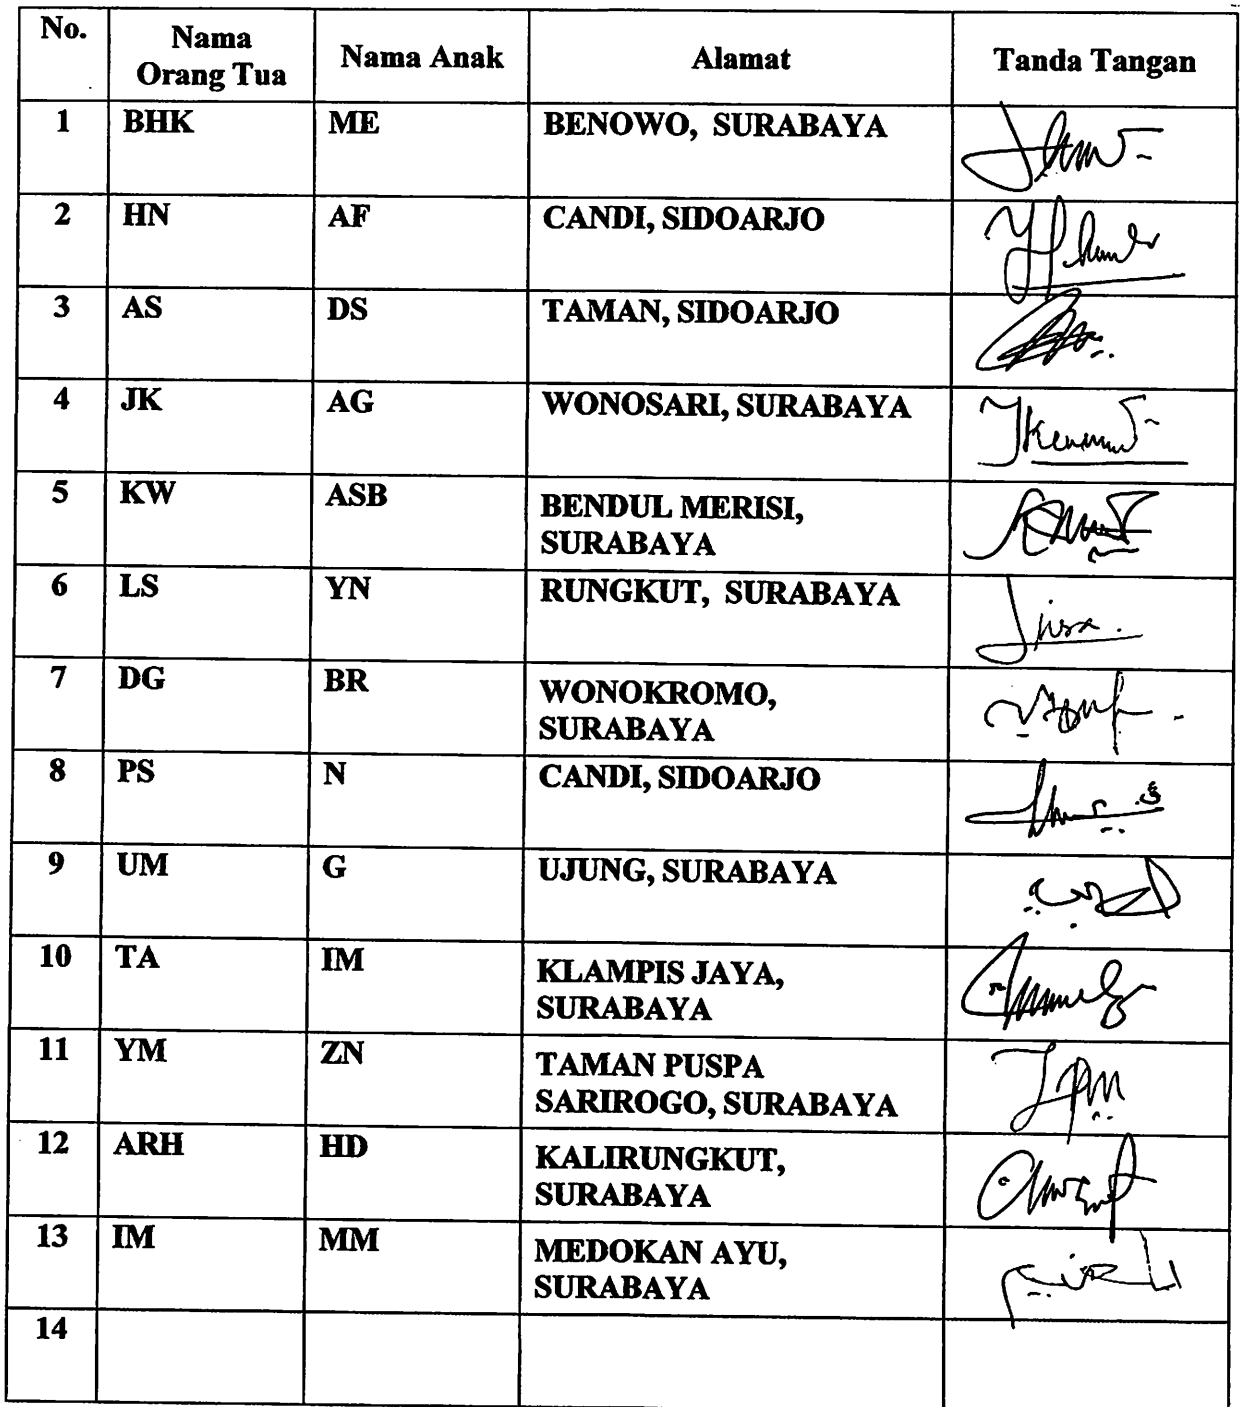 No. Nama Orang Tua Nama Anak Alamat Tanda Tangan
1 BHK ME BENOWO, SURABAYA
2 HN AF CANDI, SIDOARJO
3 AS DS TAMAN, SIDOARJO
4 JK AG WONOSARI, SURABAYA
5 KW ASB BENDUL MERISI,
SURABAYA
6 LS YN RUNGKUT, SURABAYA
7 DG BR WONOKROMO,
SURABAYA
8 PS N CANDI, SIDOARJO
9 UM G UJUNG, SURABAYA
10 TA IM KLAMPIS JAYA,
SURABAYA
11 YM ZN TAMAN PUSPA
SARIROGO, SURABAYA
12 ARH HD KALIRUNGKUT,
SURABAYA
13 IM MM MEDOKAN AYU,
SURABAYA
14